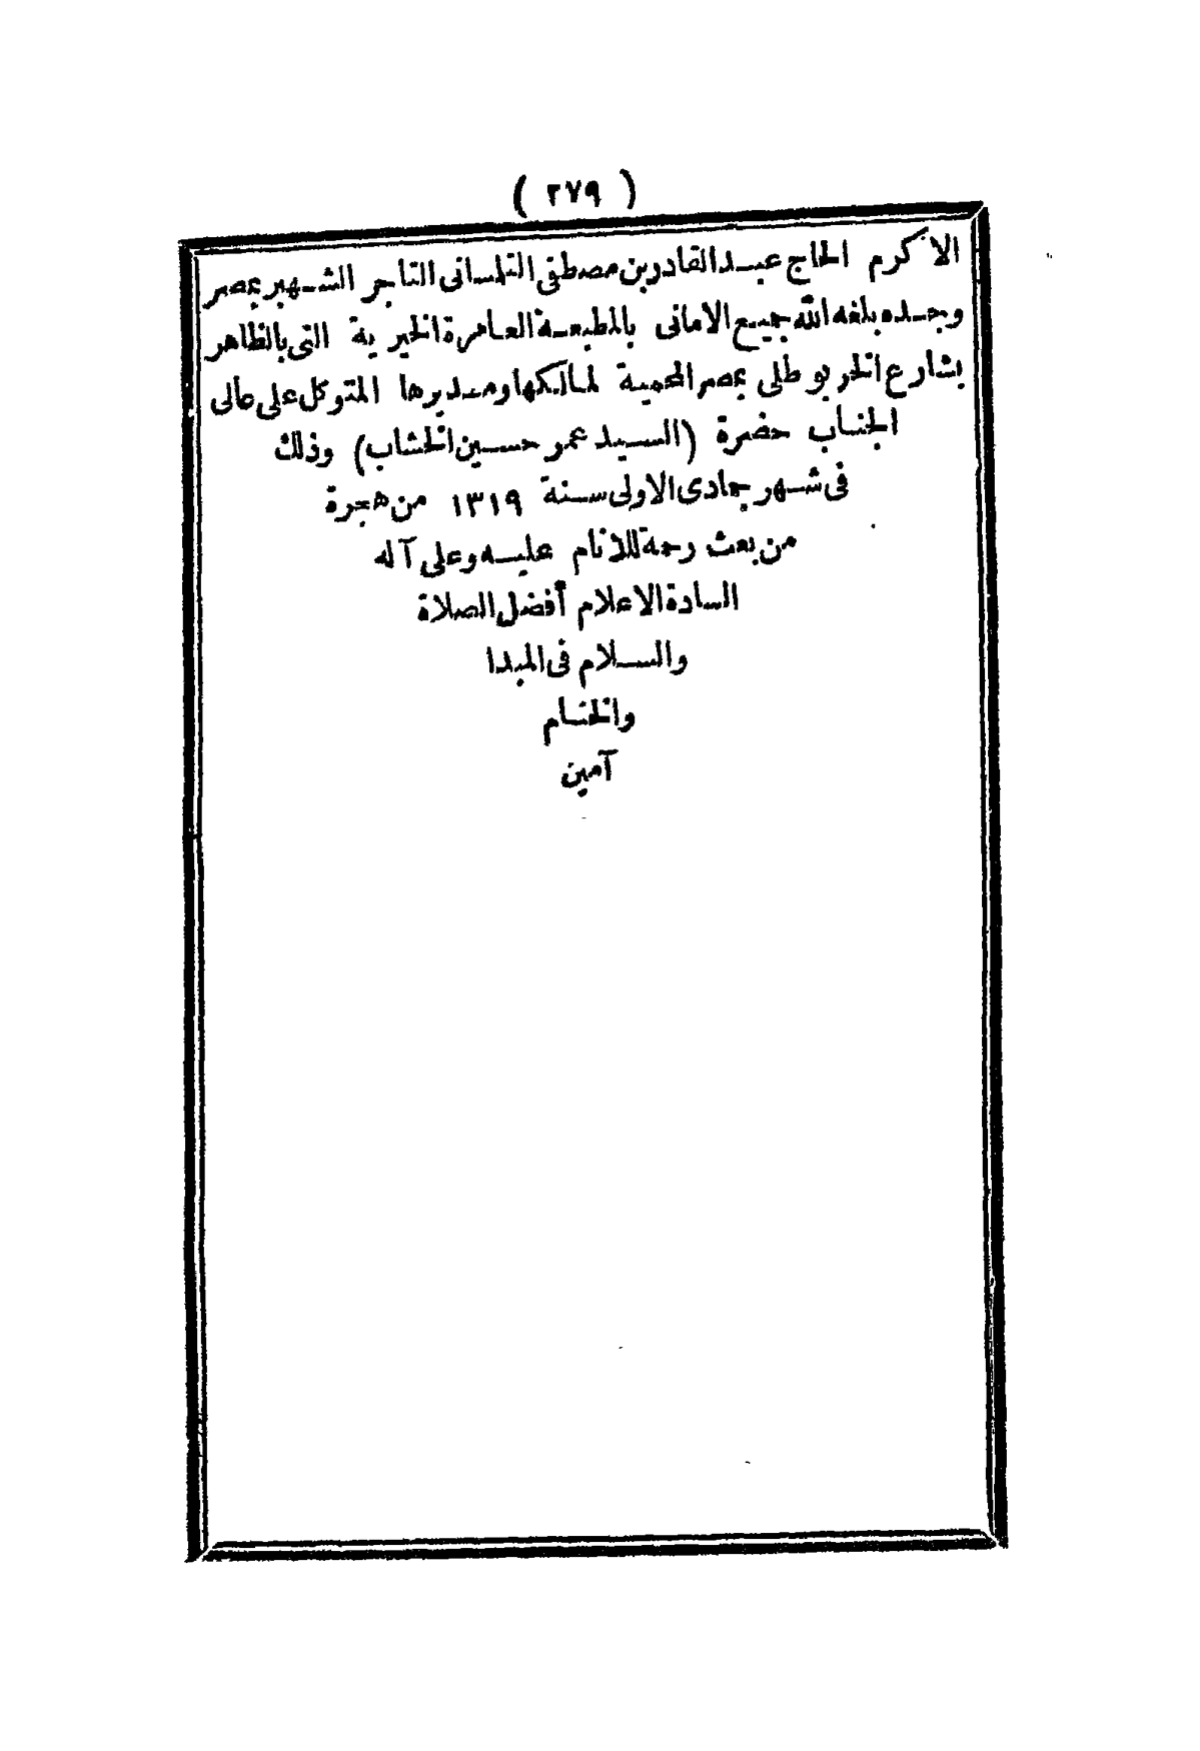 ( ٢٧٩ )
الاكرم الحاج عبدالقادر بن مصطفى التلمسانى التاجر الشهير بمصر
وجده بلغه الله جميع الامانى بالمطبعة العامرة الخيرية التى بالظاهر
بشارع الخربوطلى بمصر المحمية لمالكها ومديرها المتوكل على عالى
الجناب حضرة (السيد عمر حسين الخشاب) وذلك
فى شهر جمادى الاولى سنة ١٣١٩ من هجرة
من بعث رحمة للانام عليه وعلى آله
السادة الاعلام أفضل الصلاة
والسلام فى المبدا
والختام
آمين